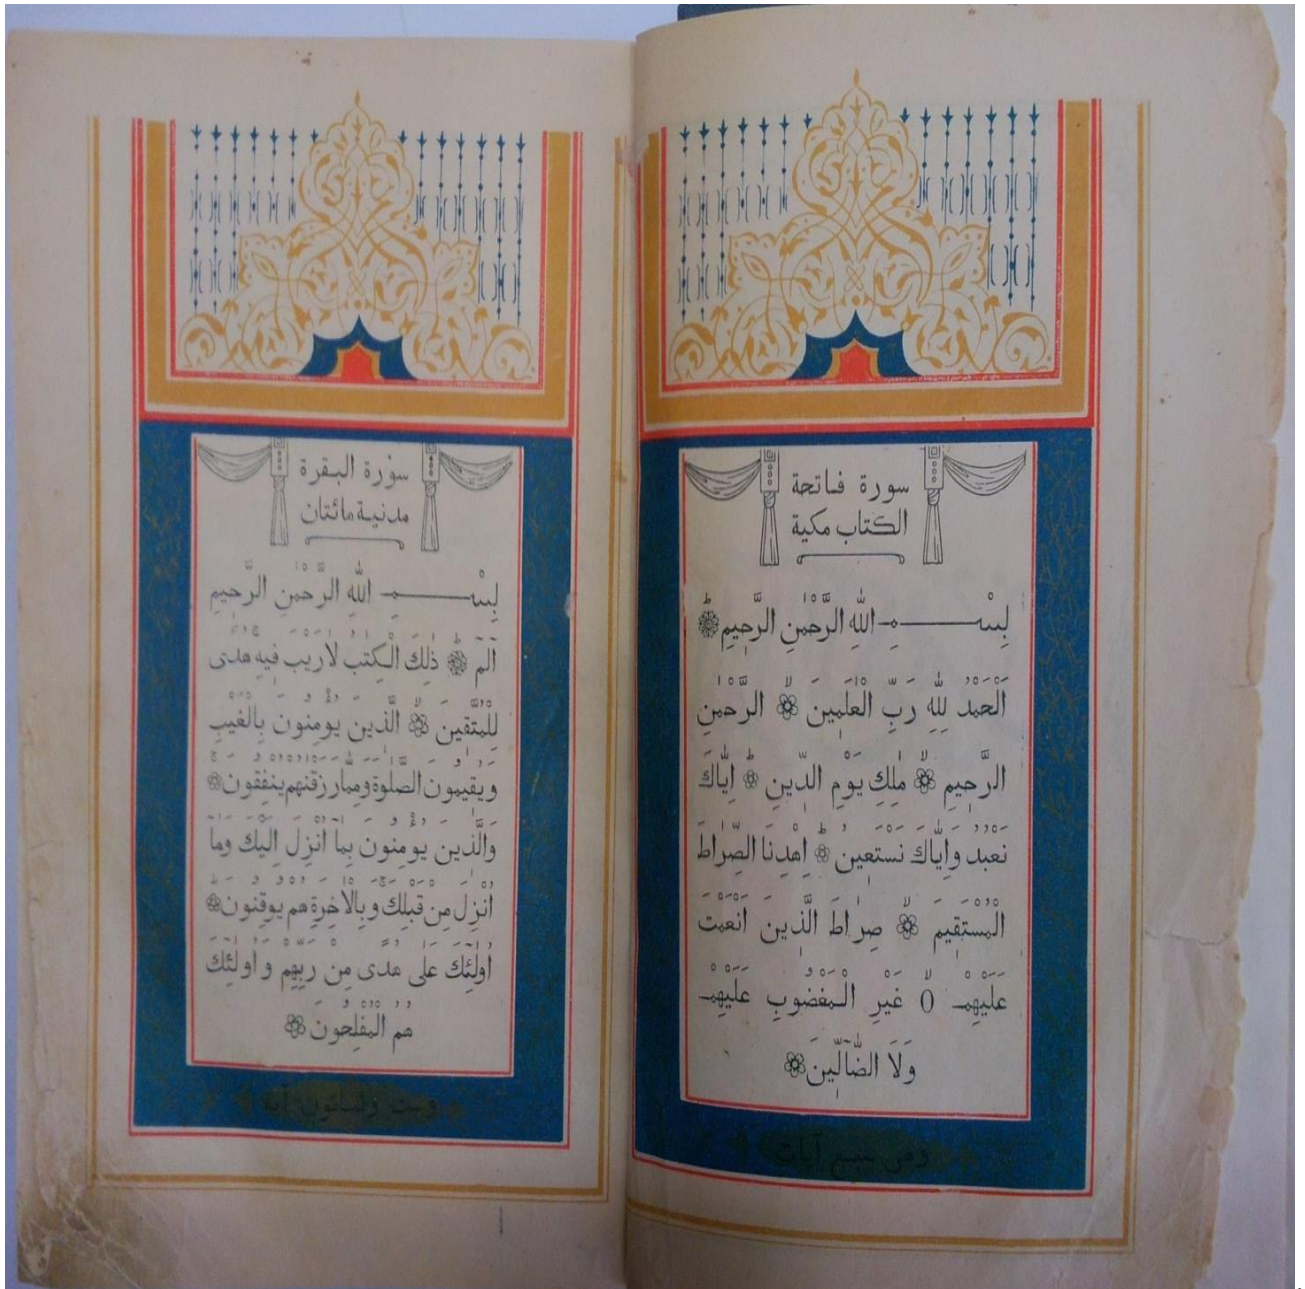 سورة فاتحة
الكتاب مكية
بِسْمِ اللّٰهِ الرَّحْمٰنِ الرَّحٖيمِ
اَلْحَمْدُ لِلّٰهِ رَبِّ الْعَالَمٖينَ الرَّحْمٰنِ
الرَّحٖيمِ مٰلِكِ يَوْمِ الدّٖينِ اِيَّاكَ
نَعْبُدُ وَاِيَّاكَ نَسْتَعٖينُ اِهْدِنَا الصِّرَاطَ
الْمُسْتَقٖيمَ صِرَاطَ الَّذٖينَ اَنْعَمْتَ
عَلَيْهِمْ غَيْرِ الْمَغْضُوبِ عَلَيْهِمْ
وَلَا الضَّٓالّٖينَ
وهي سبع آيات
سورة البقرة
مدنية مائتان
بِسْمِ اللّٰهِ الرَّحْمٰنِ الرَّحٖيمِ
الٓمٓ ذٰلِكَ الْكِتٰبُ لَا رَيْبَ فٖيهِ هُدًى
لِلْمُتَّقٖينَ الَّذٖينَ يُؤْمِنُونَ بِالْغَيْبِ
وَيُقٖيمُونَ الصَّلٰوةَ وَمِمَّا رَزَقْنٰهُمْ يُنْفِقُونَ
وَالَّذٖينَ يُؤْمِنُونَ بِمَٓا اُنْزِلَ اِلَيْكَ وَمَٓا
اُنْزِلَ مِنْ قَبْلِكَ وَبِالْاٰخِرَةِ هُمْ يُوقِنُونَ
اُولٰٓئِكَ عَلٰى هُدًى مِنْ رَبِّهِمْ وَاُولٰٓئِكَ
هُمُ الْمُفْلِحُونَ
وست وثمانون آية